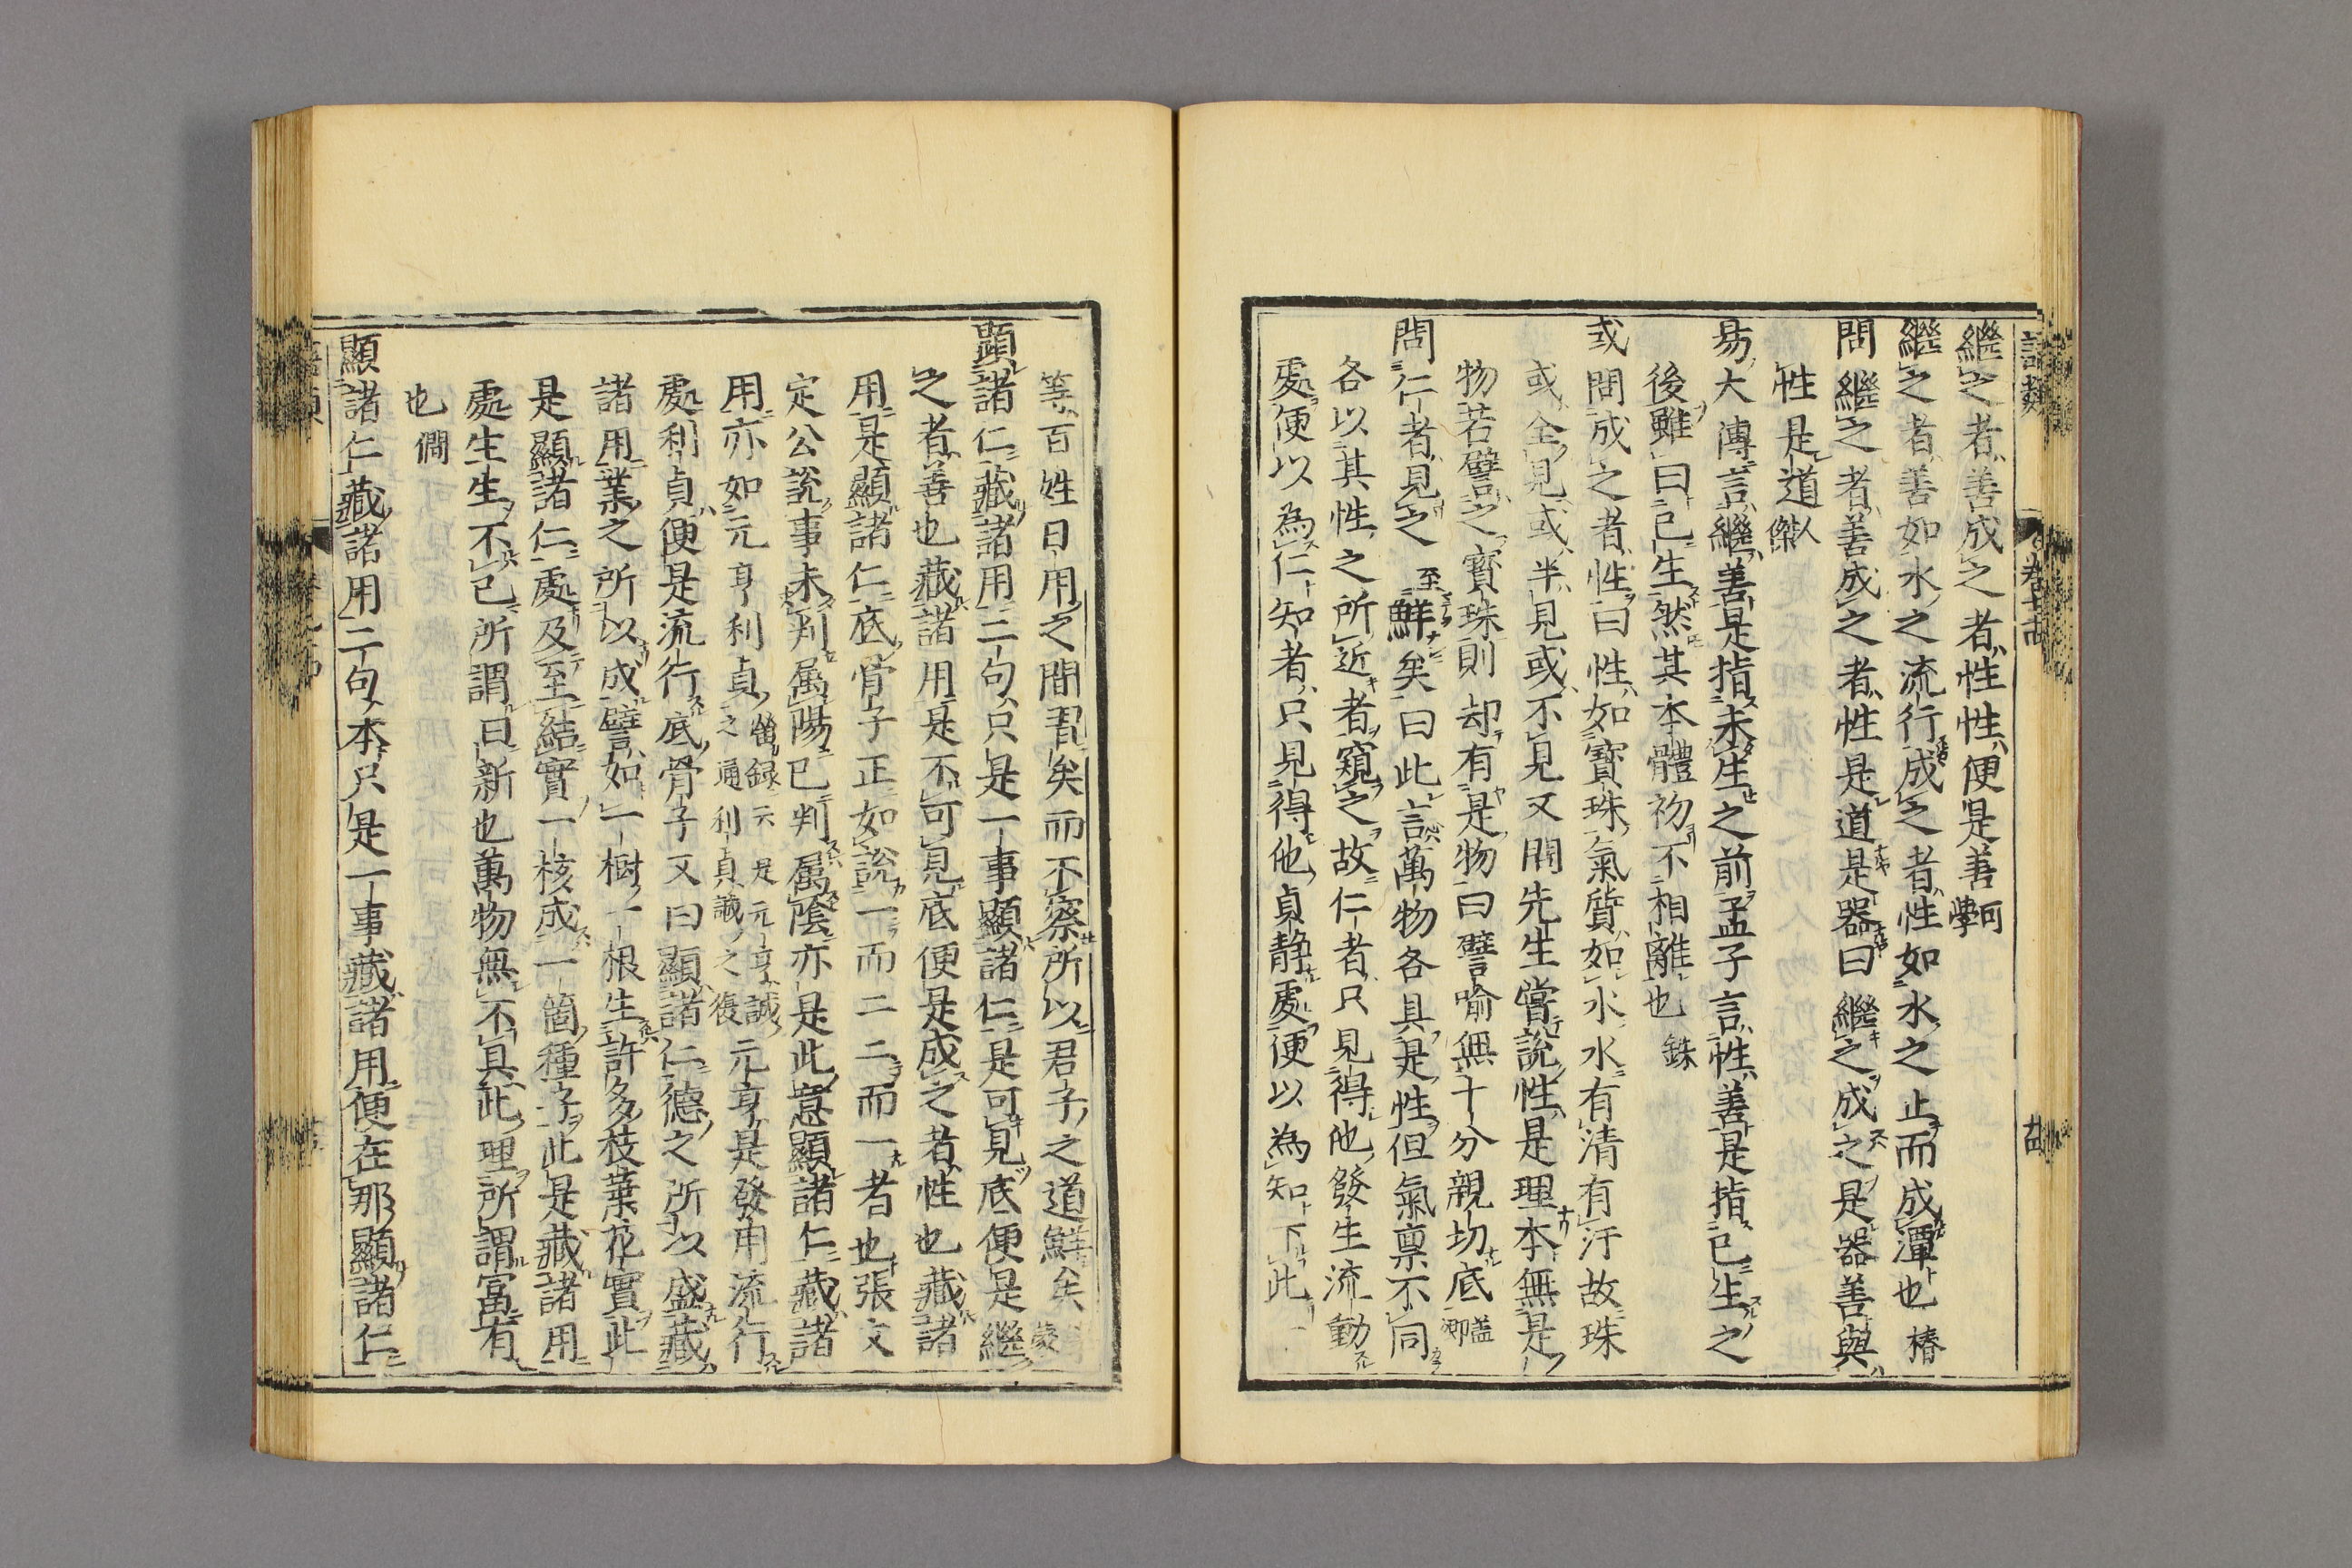 繼之者善成之者性性便是善 可學
繼之者善如水之流行成之者性如水之止而成潭也 椿
問繼之者善成之者性是道是器曰繼之成之是器善與
性是道 人傑
易大傳言繼善是指未生之前孟子言性善是指已生之
後雖曰已生然其本體初不相離也 銖
或問成之者性曰性如寶珠氣質如水水有清有汙故珠
或全見或半見或不見又問先生嘗說性是理本無是
物若譬之寶珠則却有是物曰譬喻無十分親切底 蓋卿
問仁者見之 至 鮮矣曰此言萬物各具是性但氣稟不同
各以其性之所近者窺之故仁者只見得他發生流動
處便以為仁知者只見得他貞静處便以為知下此一
等百姓日用之間習矣而不察所以君子之道鮮矣 㬊
顯諸仁藏諸用二句只是一事顯諸仁是可見底便是繼
之者善也藏諸用是不可見底便是成之者性也藏諸
用是顯諸仁底骨子正如說一而二二而一者也張文
定公說事未判属陽已判属陰亦是此意顯諸仁藏諸
用亦如元亨利貞 㽦録云是元亨誠之通利貞誠之復 元亨是發用流行
處利貞便是流行底骨子又曰顯諸仁德之所以盛藏
諸用業之所以成譬如一樹一根生許多枝葉花實此
是顯諸仁處及至結實一核成一箇種子此是藏諸用
處生生不已所謂日新也萬物無不具此理所謂富有
也 僩
顯諸仁藏諸用二句本只是一事藏諸用便在那顯諸仁